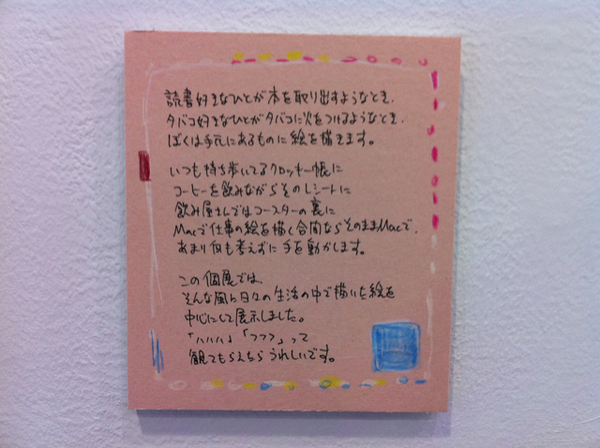 読書好きなひとが本を取り出すようなとき、
タバコ好きなひとがタバコに火をつけるようなとき、
ぼくは手元にあるものに絵を描きます。
いつも持ち歩いてるクロッキー帳に
コーヒーを飲みながらそのレシートに
飲み屋さんではコースターの裏に
Macで仕事の絵を描く合間ならそのままMacで、
あまり何も考えずに手を動かします。
この個展では、
そんな風に日々の生活の中で描いた絵を
中心にして展示しました。
「ハハハ」「フフフ」って
観てもらえたらうれしいです。